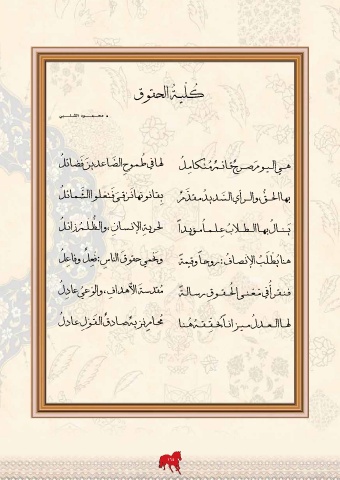 كُلّيةُ الحقوق
د. محمــود
هـي اليـوم صَـرحٌ شـانـه مُتكامِلُ لها في طُموحِ الصَّاعدينَ فَضائلُ
بها الحقُّ والرأي السَّديدُ مقدَّرٌ بِقانونها نَرقى فَتعلو الشَّمائلُ
يَنـالُ بها الـطـلابُ عِلمـاً مؤيداً لحرية الإنسانِ، والظُّلمُ زائلُ
هنا يُطلَبُ الإنصافُ: روحاً وقيمةً وتَحمي حقوقَ الناسِ: فِعلٌ وفاعلُ
فنقرأُ في مَعْنى الحُقـوقِ رسـالةً مُقدسةَ الأهدافِ، والوَعيُ عادلُ
لهـا العـدلُ ميـزانـاً لحَقَقَـهُ هُنـا مُحـامٍ نزيهٌ صادقُ القَولِ عادلُ